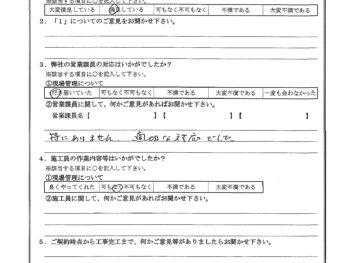 ※該当する項目に○を記入して下さい。
大変満足している 満足している 可もなく不可もなく 不満である 大変不満である
2．「1」についてのご意見をお聞かせ下さい。
3．弊社の営業課員の対応はいかがでしたか？
※該当する項目に○を記入して下さい。
①現場管理について
行き届いていた 可もなく不可もなく 不満である 大変不満である 一度も会わなかった
②営業課員に関して、何かご意見があればお聞かせ下さい。
営業課員名【 】【 】【 】
特にありません。 な対応でした
4．施工員の作業内容等はいかがでしたか？
※該当する項目に○を記入して下さい。
①現場管理について
良くやってくれた 可もなく不可もなく 不満である 大変不満である
②施工員に関して、何かご意見があればお聞かせ下さい。
5．ご契約時点から工事完工まで、何かご意見等がありましたらお聞かせ下さい。